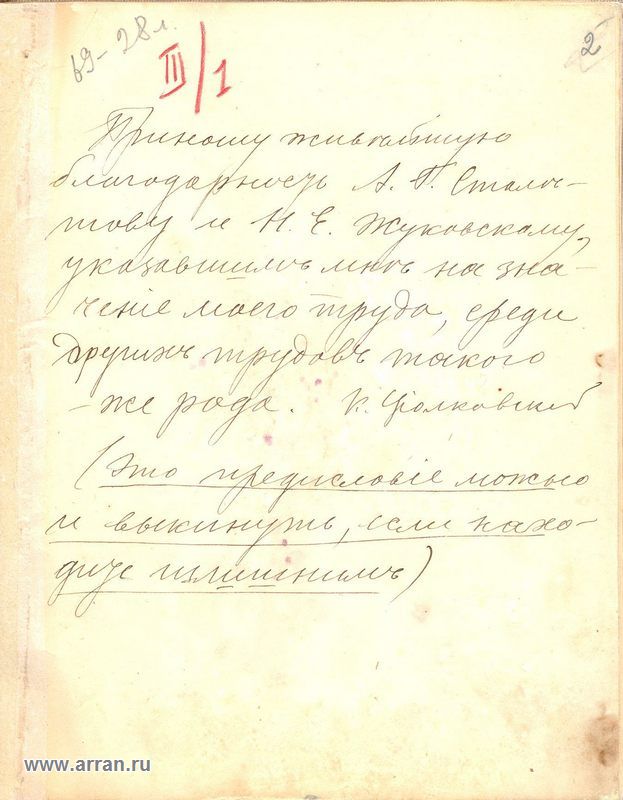 69-28 л.
III/1
2
Приношу живѣйшую
благодарность А. Г. Столѣ-
тову и Н. Е. Жуковскому,
указавшимъ мнѣ на зна-
ченіе моего труда, среди
другихъ трудовъ такого
-же рода. К. Ціолковскій
(Это предисловіе можно
и выкинуть, если нахо-
дите излишнимъ)
www.arran.ru